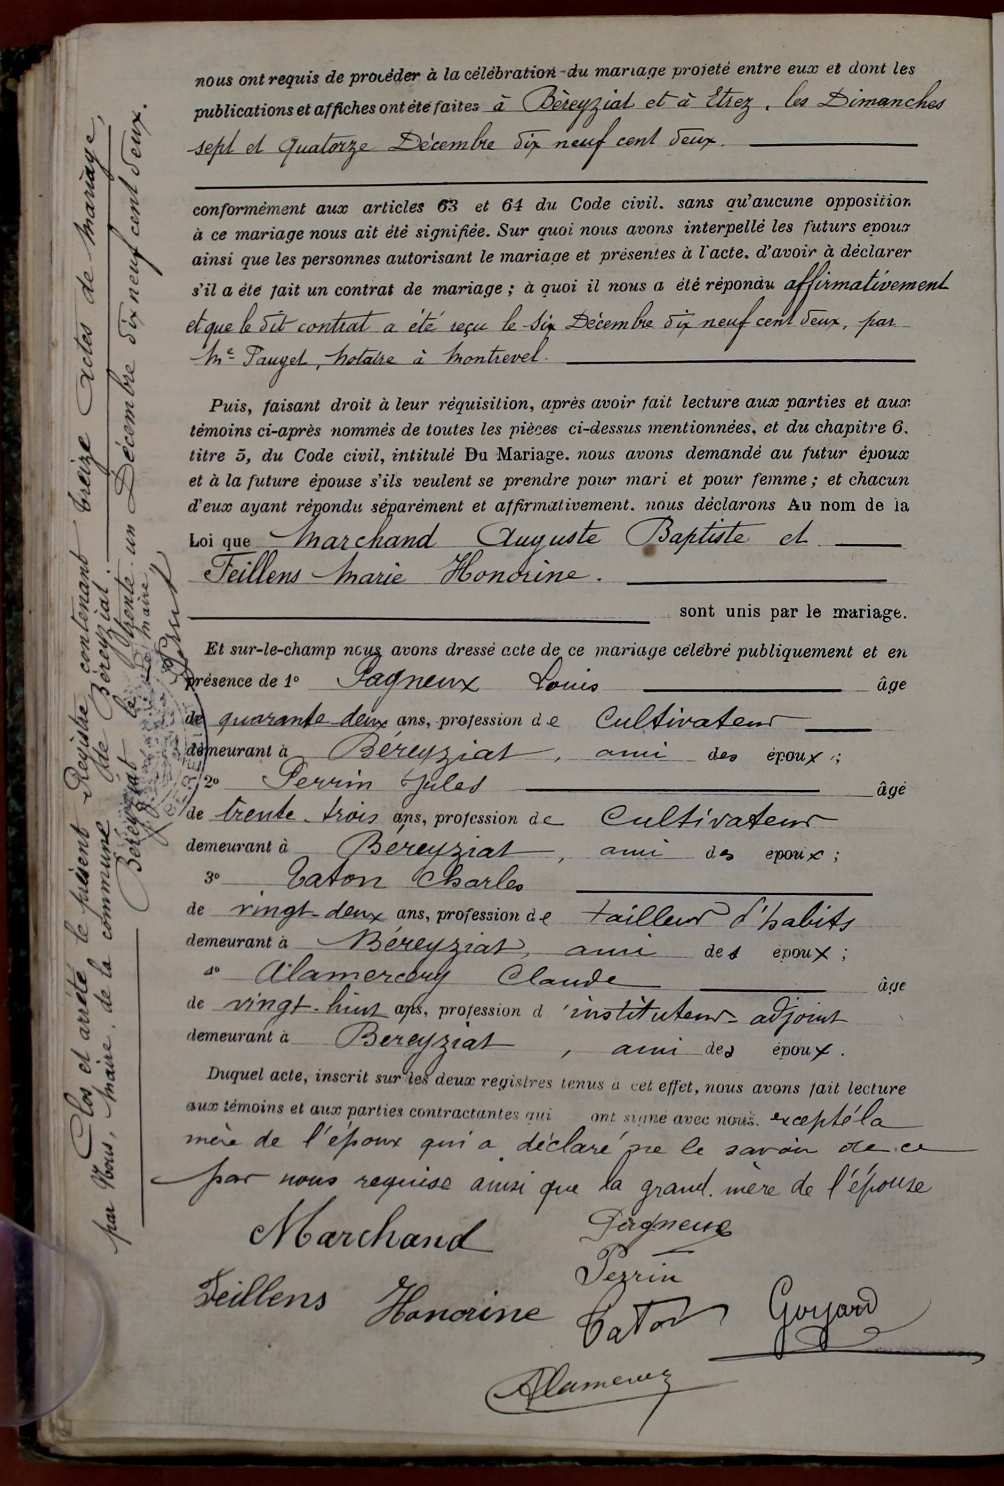 nous ont requis de procéder à la célébration du mariage projeté entre eux et dont les
publications et affiches ont été faites à Béreyziat et à Etrez, les Dimanches
sept et quatorze Décembre dix neuf cent deux.
conformément aux articles 63 et 64 du Code civil. sans qu'aucune opposition
à ce mariage nous ait été signifiée. Sur quoi nous avons interpellé les futurs epoux
ainsi que les personnes autorisant le mariage et présentes à l'acte. d'avoir à déclarer
s'il a été fait un contrat de mariage ; à quoi il nous a été répondu affirmativement
et que le dit contrat a été reçu le six Décembre dix neuf cent deux, par
Me Pauget, notaire à Montrevel.
Puis, faisant droit à leur réquisition, après avoir fait lecture aux parties et aux
témoins ci-après nommés de toutes les pièces ci-dessus mentionnées, et du chapitre 6.
titre 5, du Code civil, intitulé Du Mariage. nous avons demandé au futur époux
et à la future épouse s'ils veulent se prendre pour mari et pour femme ; et chacun
d'eux ayant répondu séparément et affirmativement. nous déclarons Au nom de la
Loi que Marchand Auguste Baptiste et
Feillens Marie Honorine.
sont unis par le mariage.
Et sur-le-champ nous avons dressé acte de ce mariage célébré publiquement et en
présence de 1° Pagneux Louis âge
de quarante-deux ans, profession de Cultivateur
demeurant à Béreyziat, ami des époux ;
2° Perrin Jules âgé
de trente-trois ans, profession de Cultivateur
demeurant à Béreyziat, ami des epoux ;
3° Caton Charles
de vingt-deux ans, profession de tailleur d'habits
demeurant à Béreyziat, ami des epoux ;
4° Alamercery Claude âge
de vingt-huit ans, profession d'instituteur-adjoint
demeurant à Bereyziat, ami des époux.
Duquel acte, inscrit sur les deux registres tenus à cet effet, nous avons fait lecture
aux témoins et aux parties contractantes qui ont signé avec nous. excepté la
mère de l'époux qui a déclaré ne le savoir de ce
par nous requise ainsi que la grand-mère de l'épouse
Marchand
Pagneux
Perrin
Feillens Honorine
Caton
Goyard
Alamercery
Clos et arrêté le présent Registre contenant treize actes de mariage,
par Nous, Maire de la commune de Béreyziat.
Béreyziat le trente-un Décembre dix neuf cent deux.
Le Maire